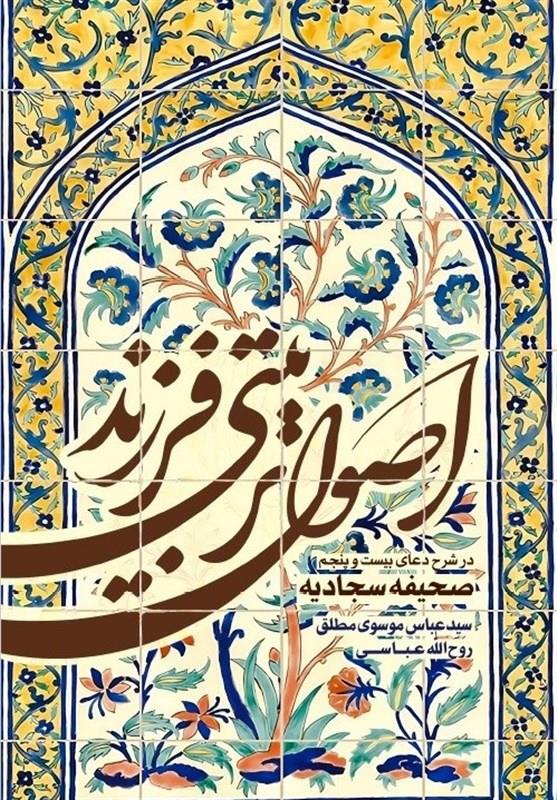 اصول تربیتی فرزند
در شرح دعای بیست و پنجم
صحیفه سجادیه
سید عباس موسوی مطلق
روح‌الله عباسی